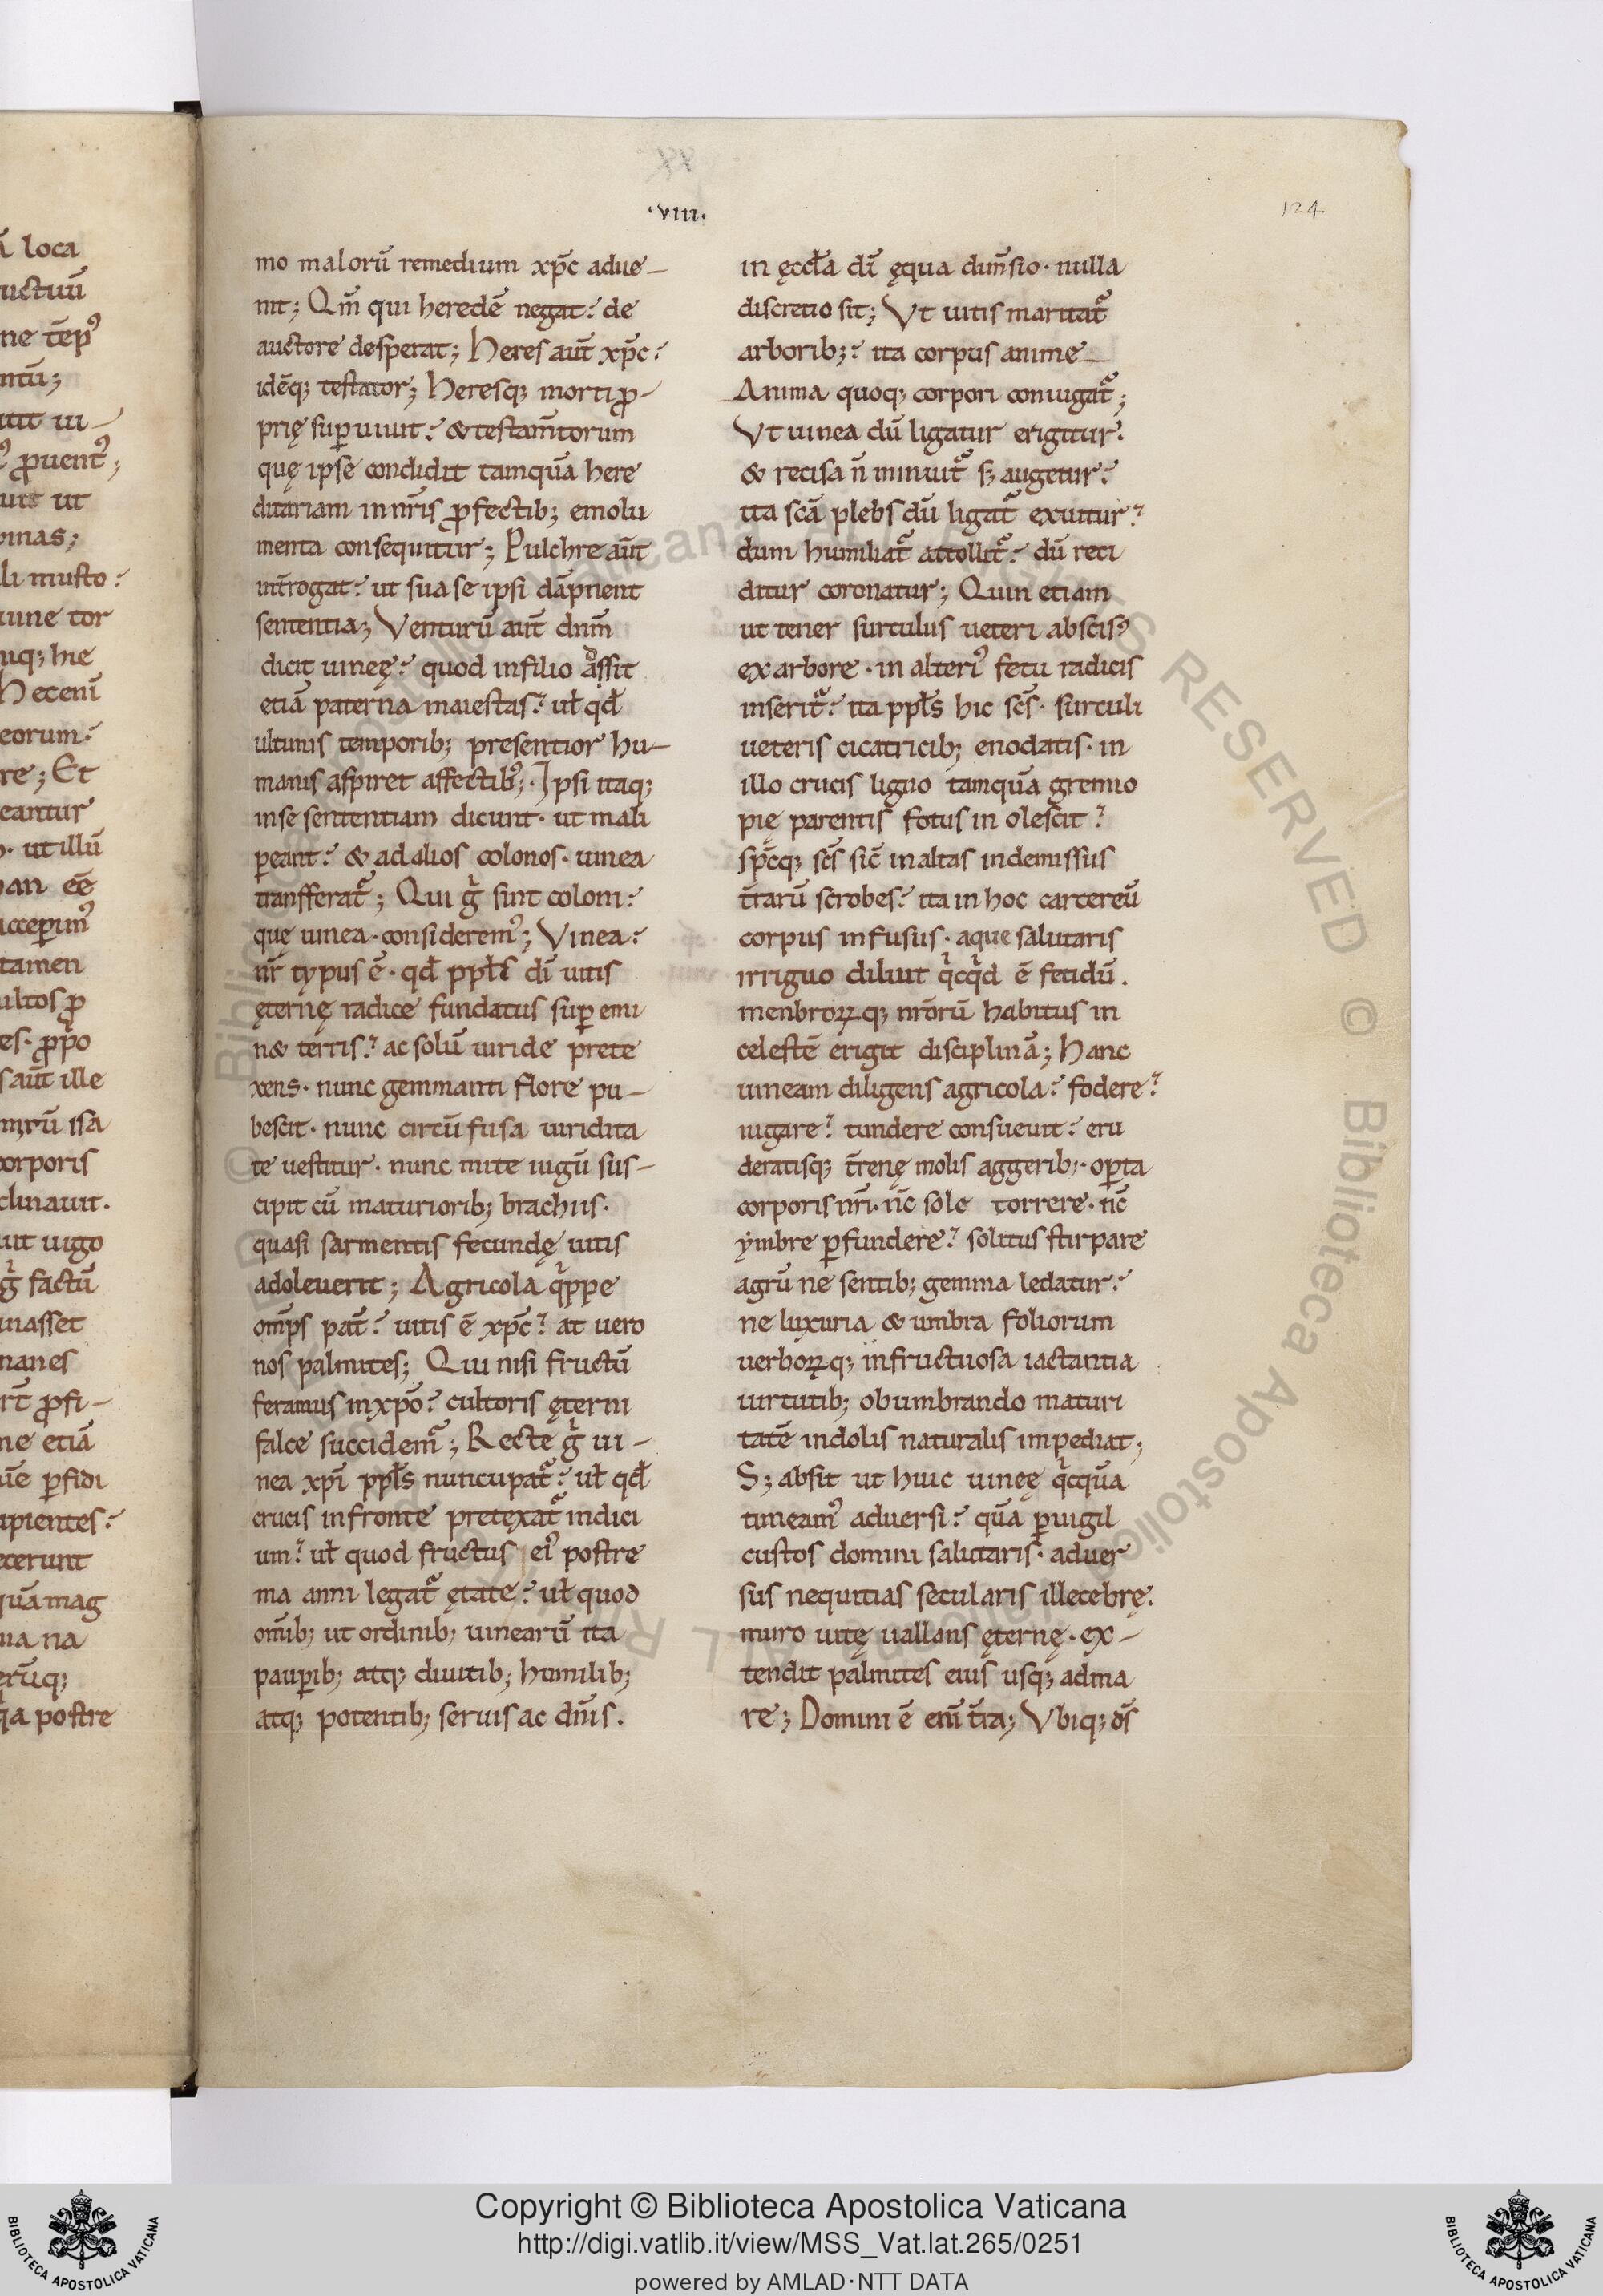 ·VIII·
124.
mo maloru̅ remedium xp̅c adue-
nit; Qm̅ qui herede̅ negat? de
auctore desperat; Heres aut̅ xp̅c?
ide̅q; testator; Heresq; morti ꝓ-
prię suꝑuiuit? & testam̅torum
quę ipse condidit tamqua̅ here
ditariam in nr̅is ꝓfectib; emolu
menta consequitur; Pulchre aut̅
int̅rogat? ut sua se ipsi da̅pnent
sententia; Venturu̅ aut̅ dn̅m
dicit uineę? quod in filio assit
etia̅ paterna maiestas? ul̅ qd̅
ultimis temporib; presentior hu-
manis aspiret affectib; Ipsi itaq;
in se sententiam dicunt· ut mali
ꝑeant? & ad alios colonos· uinea
transferat᷑; Qui gͥ sint coloni?
que uinea· consideremꝰ; Vinea?
nr̅ typus e̅· qd̅ ppl̅s di̅ uitis
ęternę radice fundatus suꝑ emi
n& terris? ac solu̅ uiride prete
xens· nunc gemmanti flore pu-
bescit· nunc circu̅fusa uiridita
te uestitur· nunc mite iugu̅ sus-
cipit cu̅ maturiorib; brachiis·
quasi sarmentis fecundę uitis
adoleuerit; Agricola qͥppe
om̅ps pat̅? uitis e̅ xp̅c? at uero
nos palmites; Qui nisi fructu̅
feramus in xp̅o? cultoris ęterni
falce succidem᷑; Recte gͥ ui-
nea xp̅i ppl̅s nuncupat᷑? ul̅ qd̅
crucis in fronte pretexat᷑ indici
um? ul̅ quod fructus eiꝰ postre
ma anni legat᷑ ętate? ul̅ quod
om̅ib; ut ordinib; uinearu̅ ita
pauꝑib; atq; diuitib; humilib;
atq; potentib; seruis ac dn̅is.
in ęccl̅a di̅ ęqua dim̅sio· nulla
discretio sit; Vt uitis maritat᷑
arborib;? ita corpus anime
Anima quoq; corpori coniugat᷑;
Vt uinea du̅ ligatur erigitur?
& recisa n̅ minuit᷑ s; augetur?
ita sc̅a plebs du̅ ligat᷑ exuitur?
dum humiliat᷑ attollit᷑? du̅ reci
ditur coronatur; Quin etiam
ut tener surculus ueteri abscisꝰ
ex arbore· in alteriꝰ fetu radicis
inserit᷑? ita ppl̅s hic sc̅s· surculi
ueteris cicatricib; enodatis· in
illo crucis ligno tamqua̅ gremio
pię parentis fotus inolescit?
sp̅cq; sc̅s sic̅ in altas indemissus
t̅raru̅ scrobes? ita in hoc carcereu̅
corpus infusus· aque salutaris
irriguo diluit qͥcqͥd e̅ fetidu̅.
menbroꝝq; nr̅oru̅ habitus in
celeste̅ erigit disciplina̅; Hanc
uineam diligens agricola? fodere?
iugare? tundere consueuit? eru
deratisq; t̅renę molis aggerib;· oꝑta
corporis nr̅i· nc̅ sole torrere· nc̅
ymbre ꝑfundere? solitus stirpare
agru̅ ne sentib; gemma ledatur?
ne luxuria & umbra foliorum
uerboꝝq; infructuosa iactantia
uirtutib; obumbrando maturi
tate̅ indolis naturalis impediat;
S; absit ut huic uineę qͥcqua̅
timeamꝰ aduersi? qua̅ ꝑuigil
custos domini salutaris· aduer
sus nequitias secularis illecebrę.
muro uitę uallans ęternę· ex-
tendit palmites eius usq; ad ma
re; Domini e̅ eni̅ t̅ra; Vbiq; ds̅
Copyright © Biblioteca Apostolica Vaticana
http://digi.vatlib.it/view/MSS_Vat.lat.265/0251
powered by AMLAD·NTT DATA